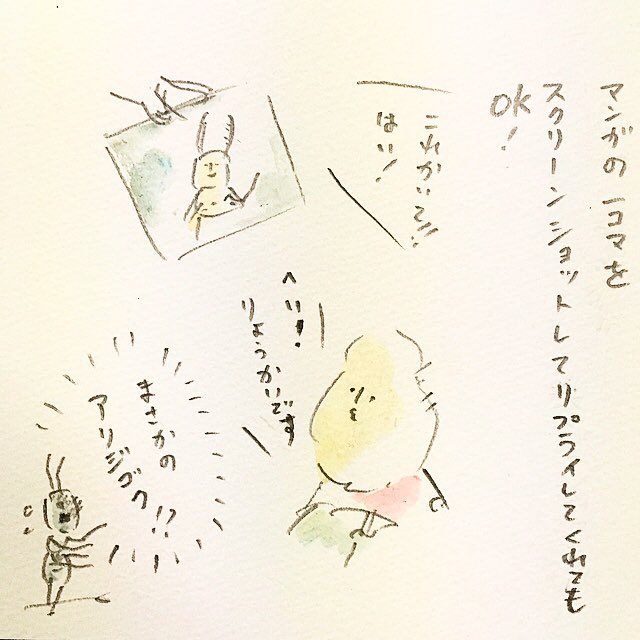 マンガの一コマを
スクリーンショットしてリプライしてくれても
OK!
これかいて!!
はい!
へい!
りょうかいです
まさかの
アリジゴク!?